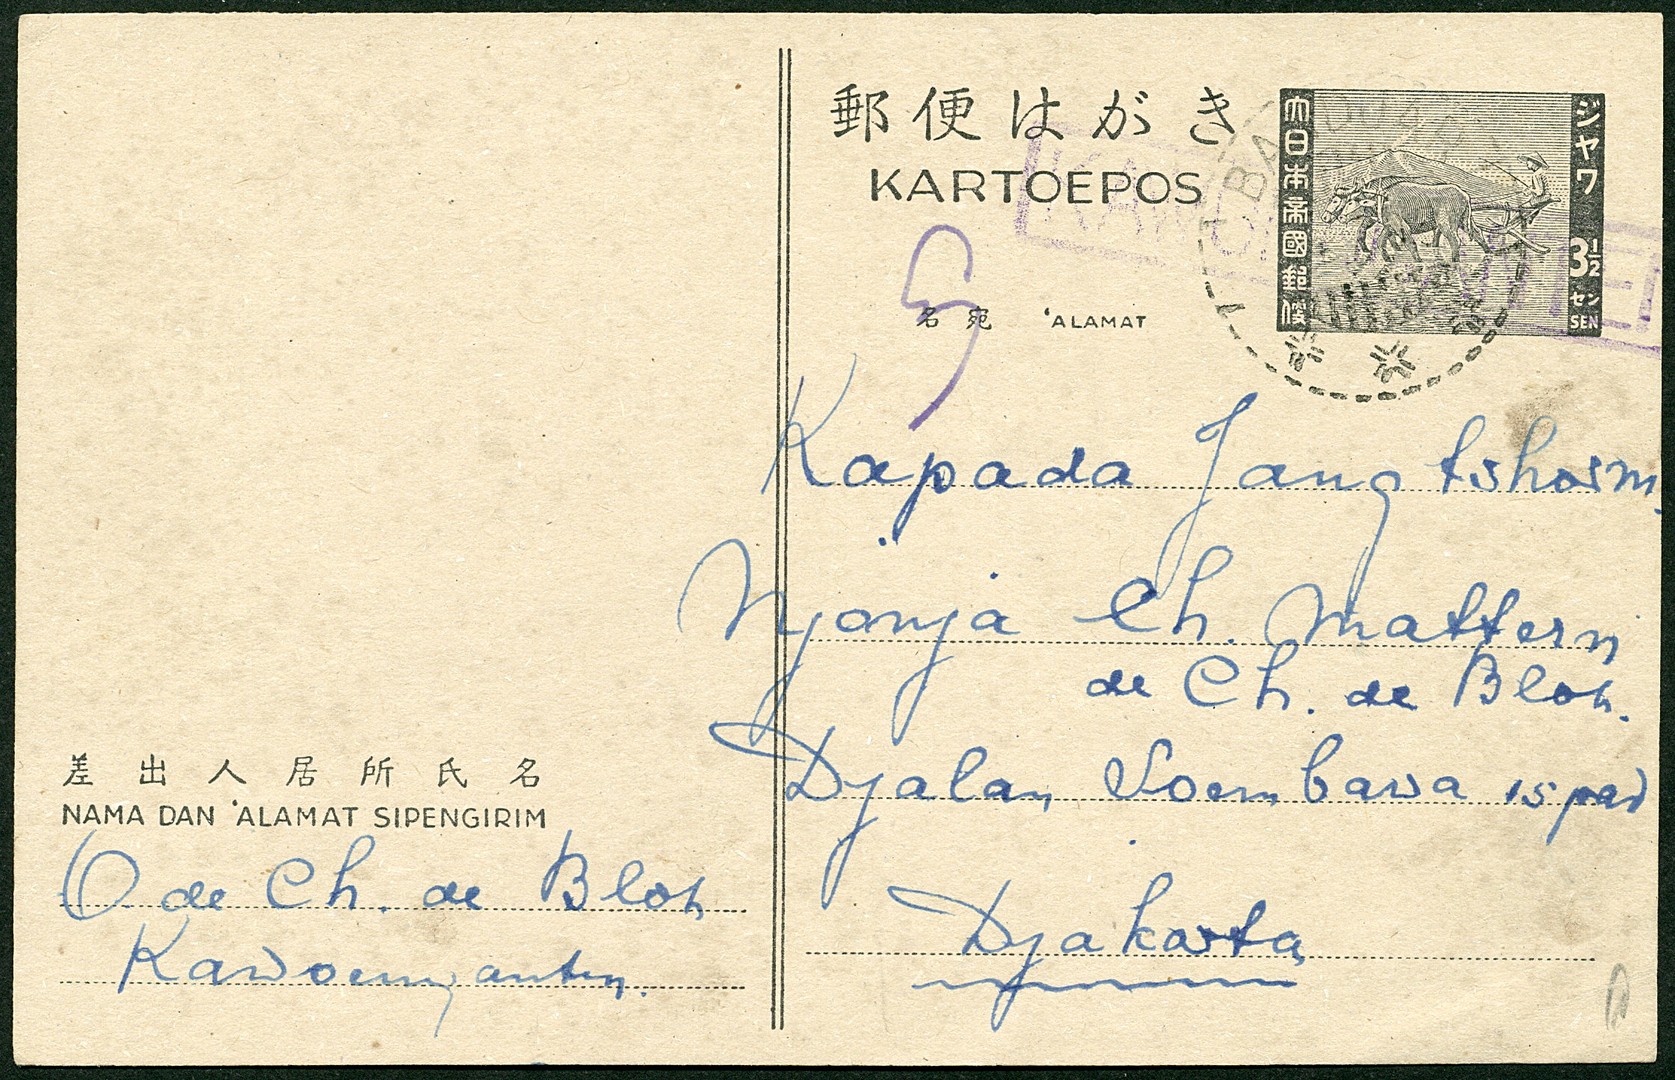 郵便はがき
KARTOEPOS
名宛 'ALAMAT
大日本帝國郵便
ジャワ
3½
セン
SEN
Kapada Jang tshorm.
Njonja Ch. Mattern
de Ch. de Blot.
Djalan Soembawa 15 pav
Djakarta
差出人居所氏名
NAMA DAN 'ALAMAT SIPENGIRIM
O de Ch. de Blot
Kawoenganten.